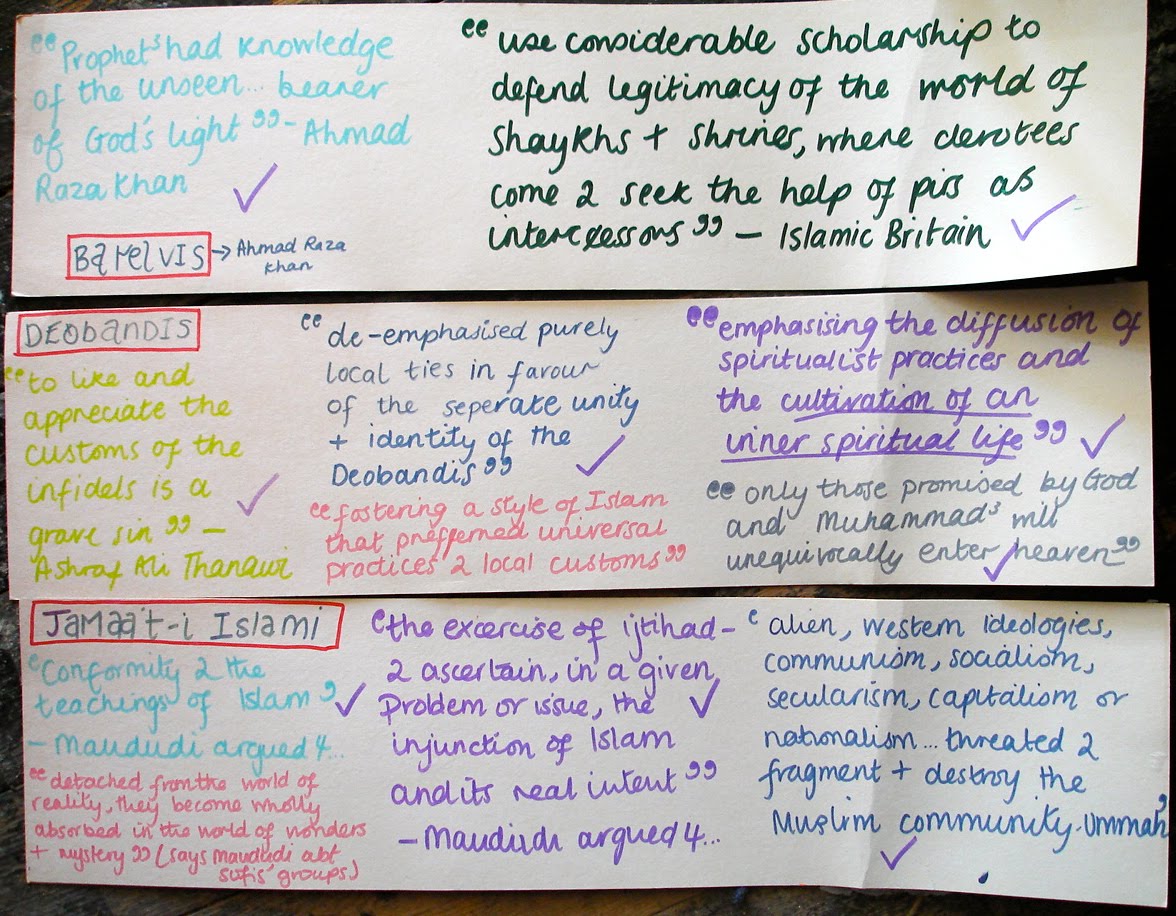 “Prophetˢ had knowledge
of the unseen... bearer
of God's light” – Ahmad
Raza Khan
BarelVIS → Ahmad Raza
Khan
“use considerable scholarship to
defend legitimacy of the world of
Shaykhs + shrines, where devotees
come 2 seek the help of pirs as
intercessors” – Islamic Britain
DEObandis
“to like and
appreciate the
customs of the
infidels is a
grave sin” –
Ashraf Ali Thanawi
“de-emphasised purely
local ties in favour
of the seperate unity
+ identity of the
Deobandis”
“fostering a style of Islam
that prefferred universal
practices 2 local customs”
“emphasising the diffusion of
spiritualist practices and
the cultivation of an
inner spiritual life”
“only those promised by God
and Muhammadˢ will
unequivocally enter heaven”
Jamaat-i Islami
‘Conformity 2 the
teachings of Islam’
– Maududi argued 4...
“detached from the world of
reality, they become wholly
absorbed in the world of wonders
+ mystery” (says maududi abt
sufis' groups)
‘the excercise of ijtihad –
2 ascertain, in a given
Problem or issue, the
injunction of Islam
and its real intent”
– Maududi argued 4...
‘alien, western ideologies,
communism, socialism,
secularism, capitalism or
nationalism... threated 2
fragment + destroy the
Muslim community. Ummah’